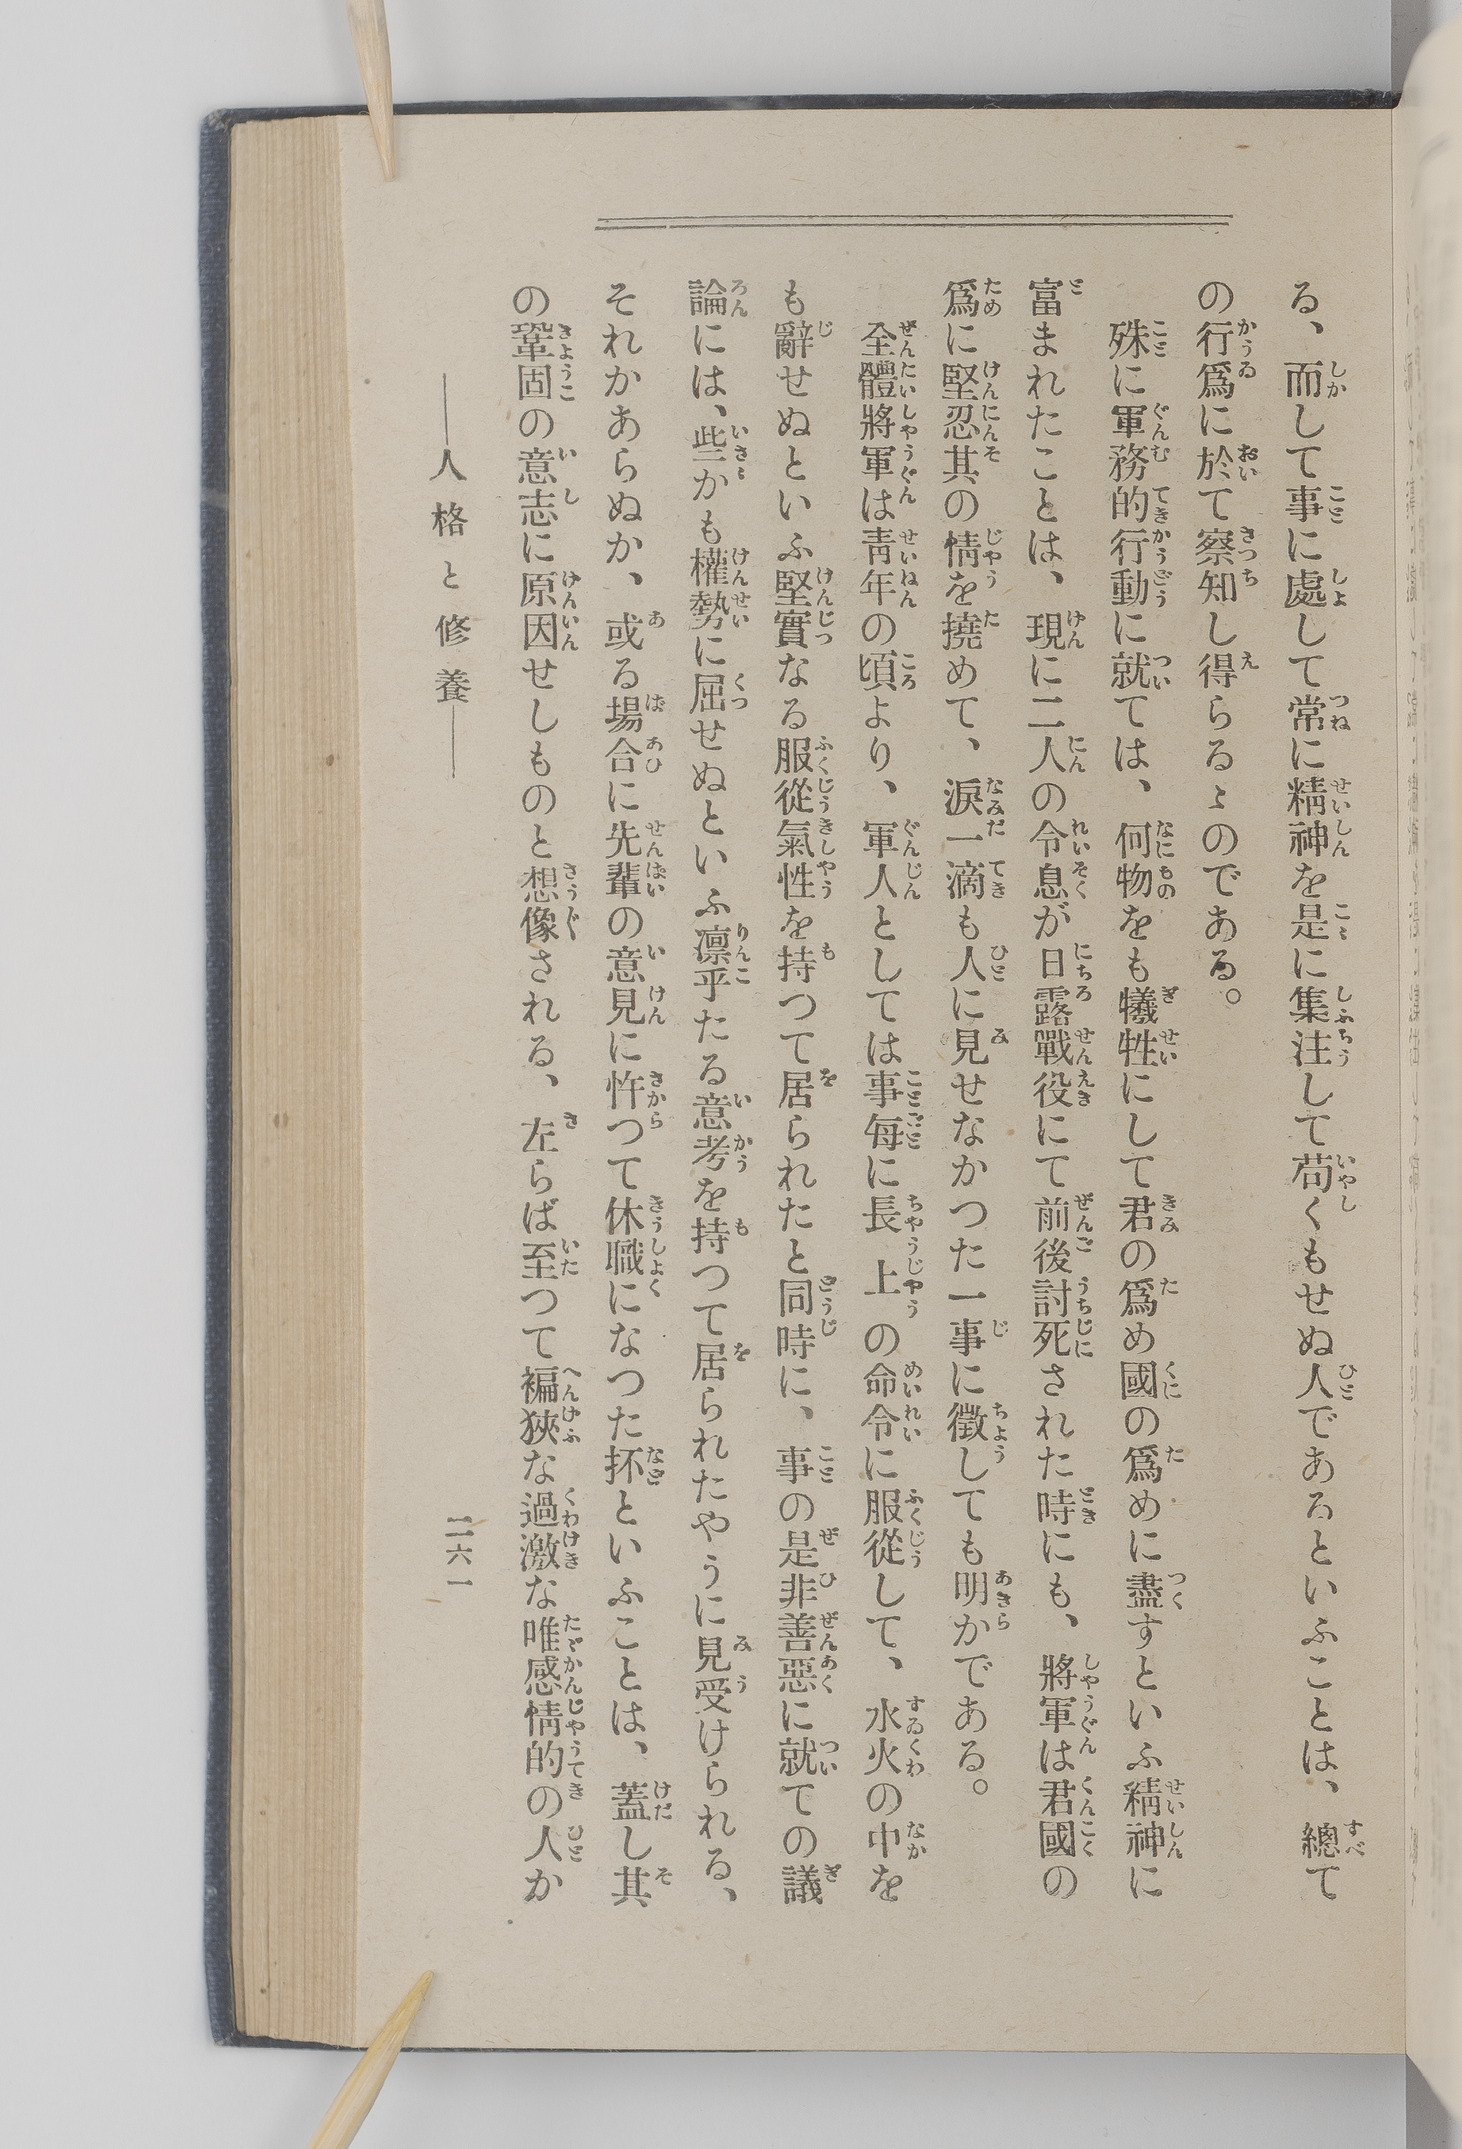 る、而して事に處して常に精神を是に集注して苟くもせぬ人であるといふことは、總て
の行爲に於て察知し得らるゝのである。
殊に軍務的行動に就ては、何物をも犧牲にして君の爲め國の爲めに盡すといふ精神に
富まれたことは、現に二人の令息が日露戰役にて前後討死された時にも、將軍は君國の
爲に堅忍其の情を撓めて、淚一滴も人に見せなかつた一事に徵しても明かである。
全體將軍は靑年の頃より、軍人としては事每に長上の命令に服從して、水火の中を
も辭せぬといふ堅實なる服從氣性を持つて居られたと同時に、事の是非善惡に就ての議
論には、些かも權勢に屈せぬといふ凛乎たる意考を持つて居られたやうに見受けられる、
それかあらぬか、或る場合に先輩の意見に忤つて休職になつた抔といふことは、蓋し其
の鞏固の意志に原因せしものと想像される、左らば至つて褊狹な過激な唯感情的の人か
――人格と修養――
二六一